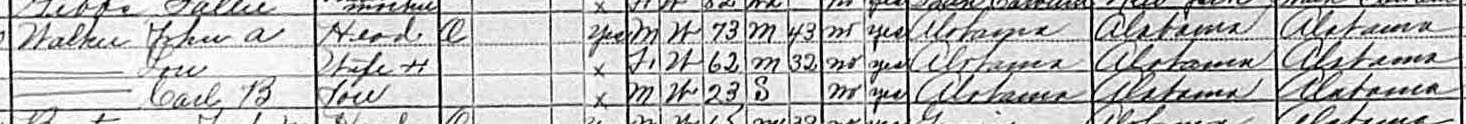 Gibbs Sallie x W 82 Wd no yes
Walker John A Head O yes M W 73 M 43 no yes Alabama Alabama Alabama
Lou Wife H x F W 62 M 32 no yes Alabama Alabama Alabama
Carl B Son x M W 23 S no yes Alabama Alabama Alabama
Head O Alabama Alabama